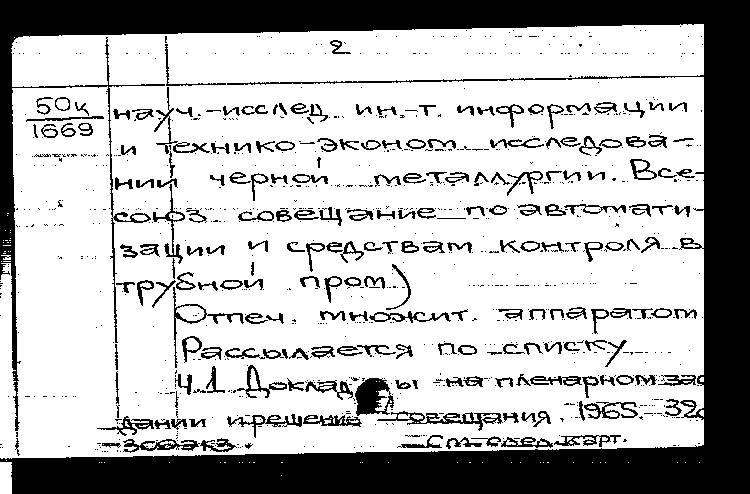 2
50к
1669
науч.-исслед. ин.-т. информации
и технико-эконом. исследова-
ний черной металлургии. Все-
союз. совещание по автомати-
зации и средствам контроля в
трубной пром.)
Отпеч. множит. аппаратом
Рассылается по списку
Ч.1 Доклады на пленарном зас
дании и решение совещания. 1965.- 32с
350экз. См. след. карт.